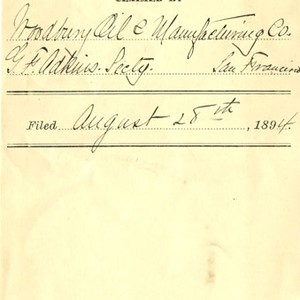 CLAIMED BY
Woodbury Oil & Manufacturing Co.
G. F. Adkins. Secty. San Francisco
Filed August 28th, 1894.